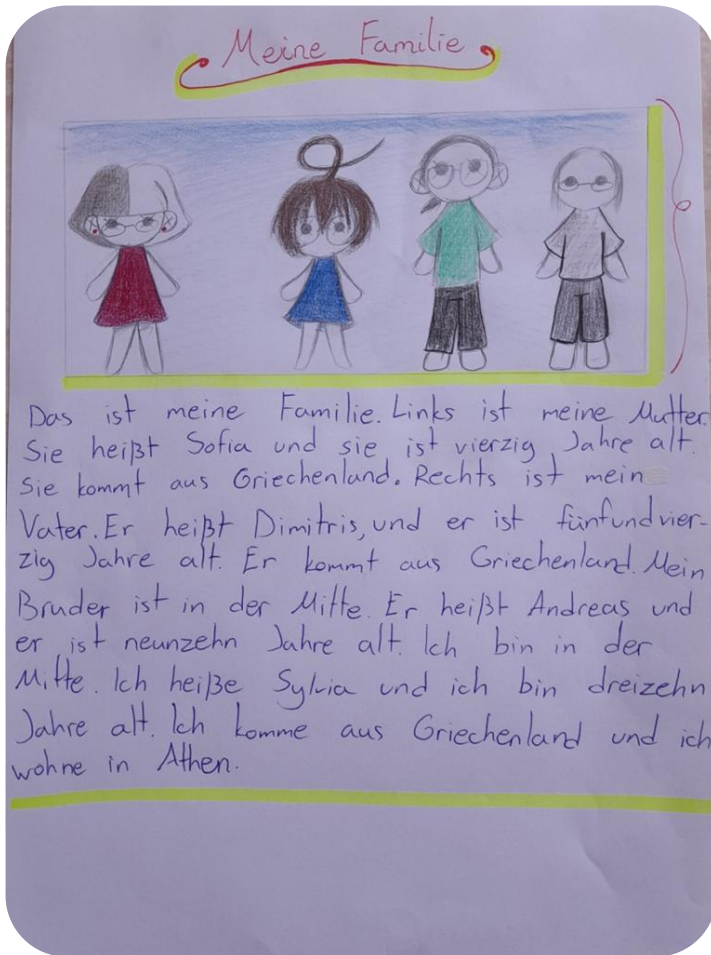 Meine Familie
Das ist meine Familie. Links ist meine Mutter.
Sie heißt Sofia und sie ist vierzig Jahre alt.
Sie kommt aus Griechenland. Rechts ist mein
Vater. Er heißt Dimitris, und er ist fünfundvier-
zig Jahre alt. Er kommt aus Griechenland. Mein
Bruder ist in der Mitte. Er heißt Andreas und
er ist neunzehn Jahre alt. Ich bin in der
Mitte. Ich heiße Sylvia und ich bin dreizehn
Jahre alt. Ich komme aus Griechenland und ich
wohne in Athen.